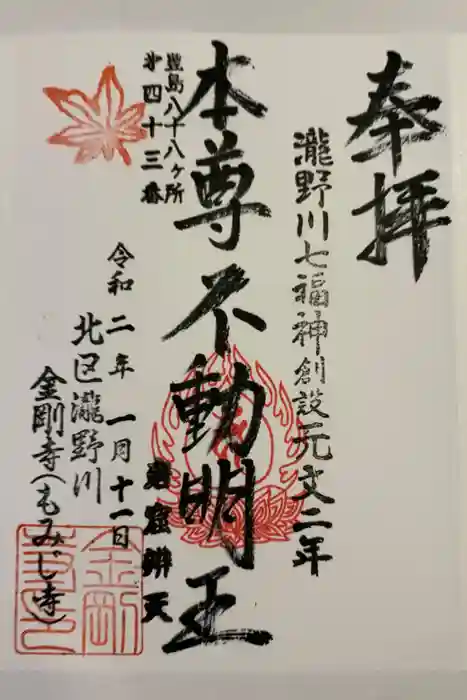 奉拝
瀧野川七福神創設元文二年
本尊不動明王
豊島八十八ヶ所
第四十三番
岩窟辨天
令和二年一月十一日
北区瀧野川
金剛寺(もみじ寺)